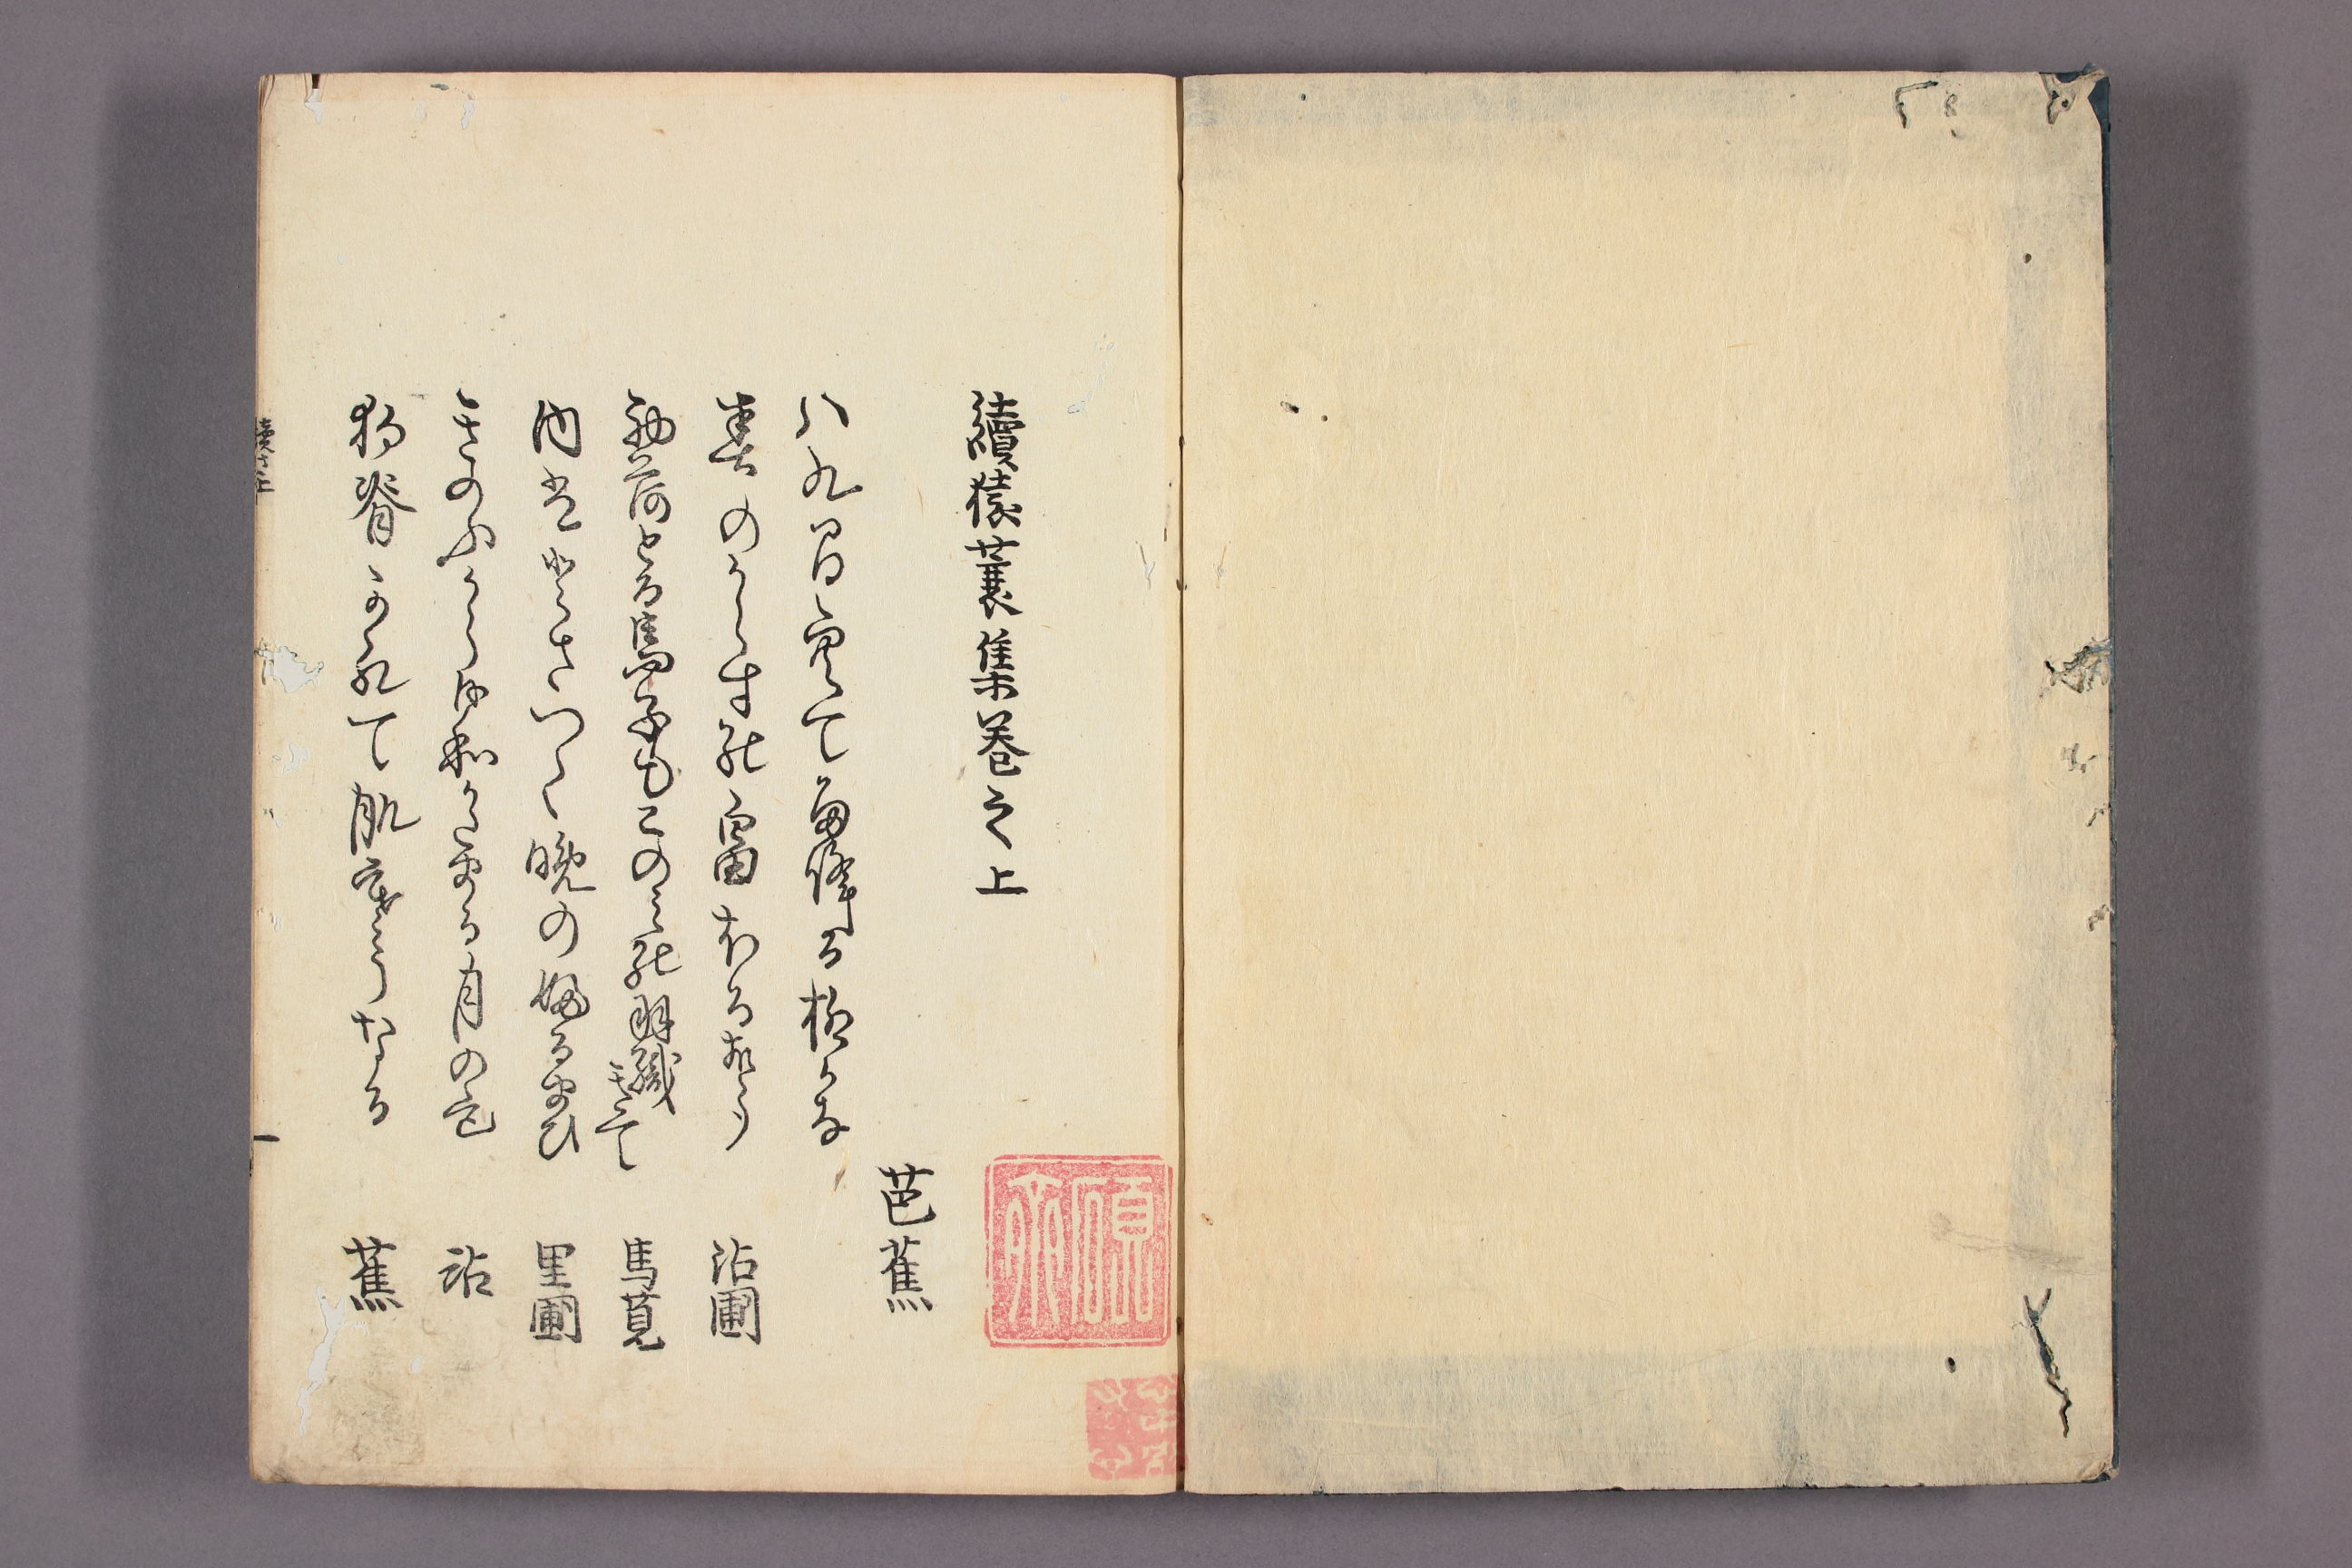 續猿蓑集巻之上
芭蕉
八九間空て雨降る柳かな
春のからすの畠ほる声
沾圃
初荷とる馬子もこのみの羽織きて
馬莧
内はとさつく晩のふるまひ
里圃
きのふから日和かたまる月の色
沾
狗脊かれて肌寒うなる
蕉
續さ上
一